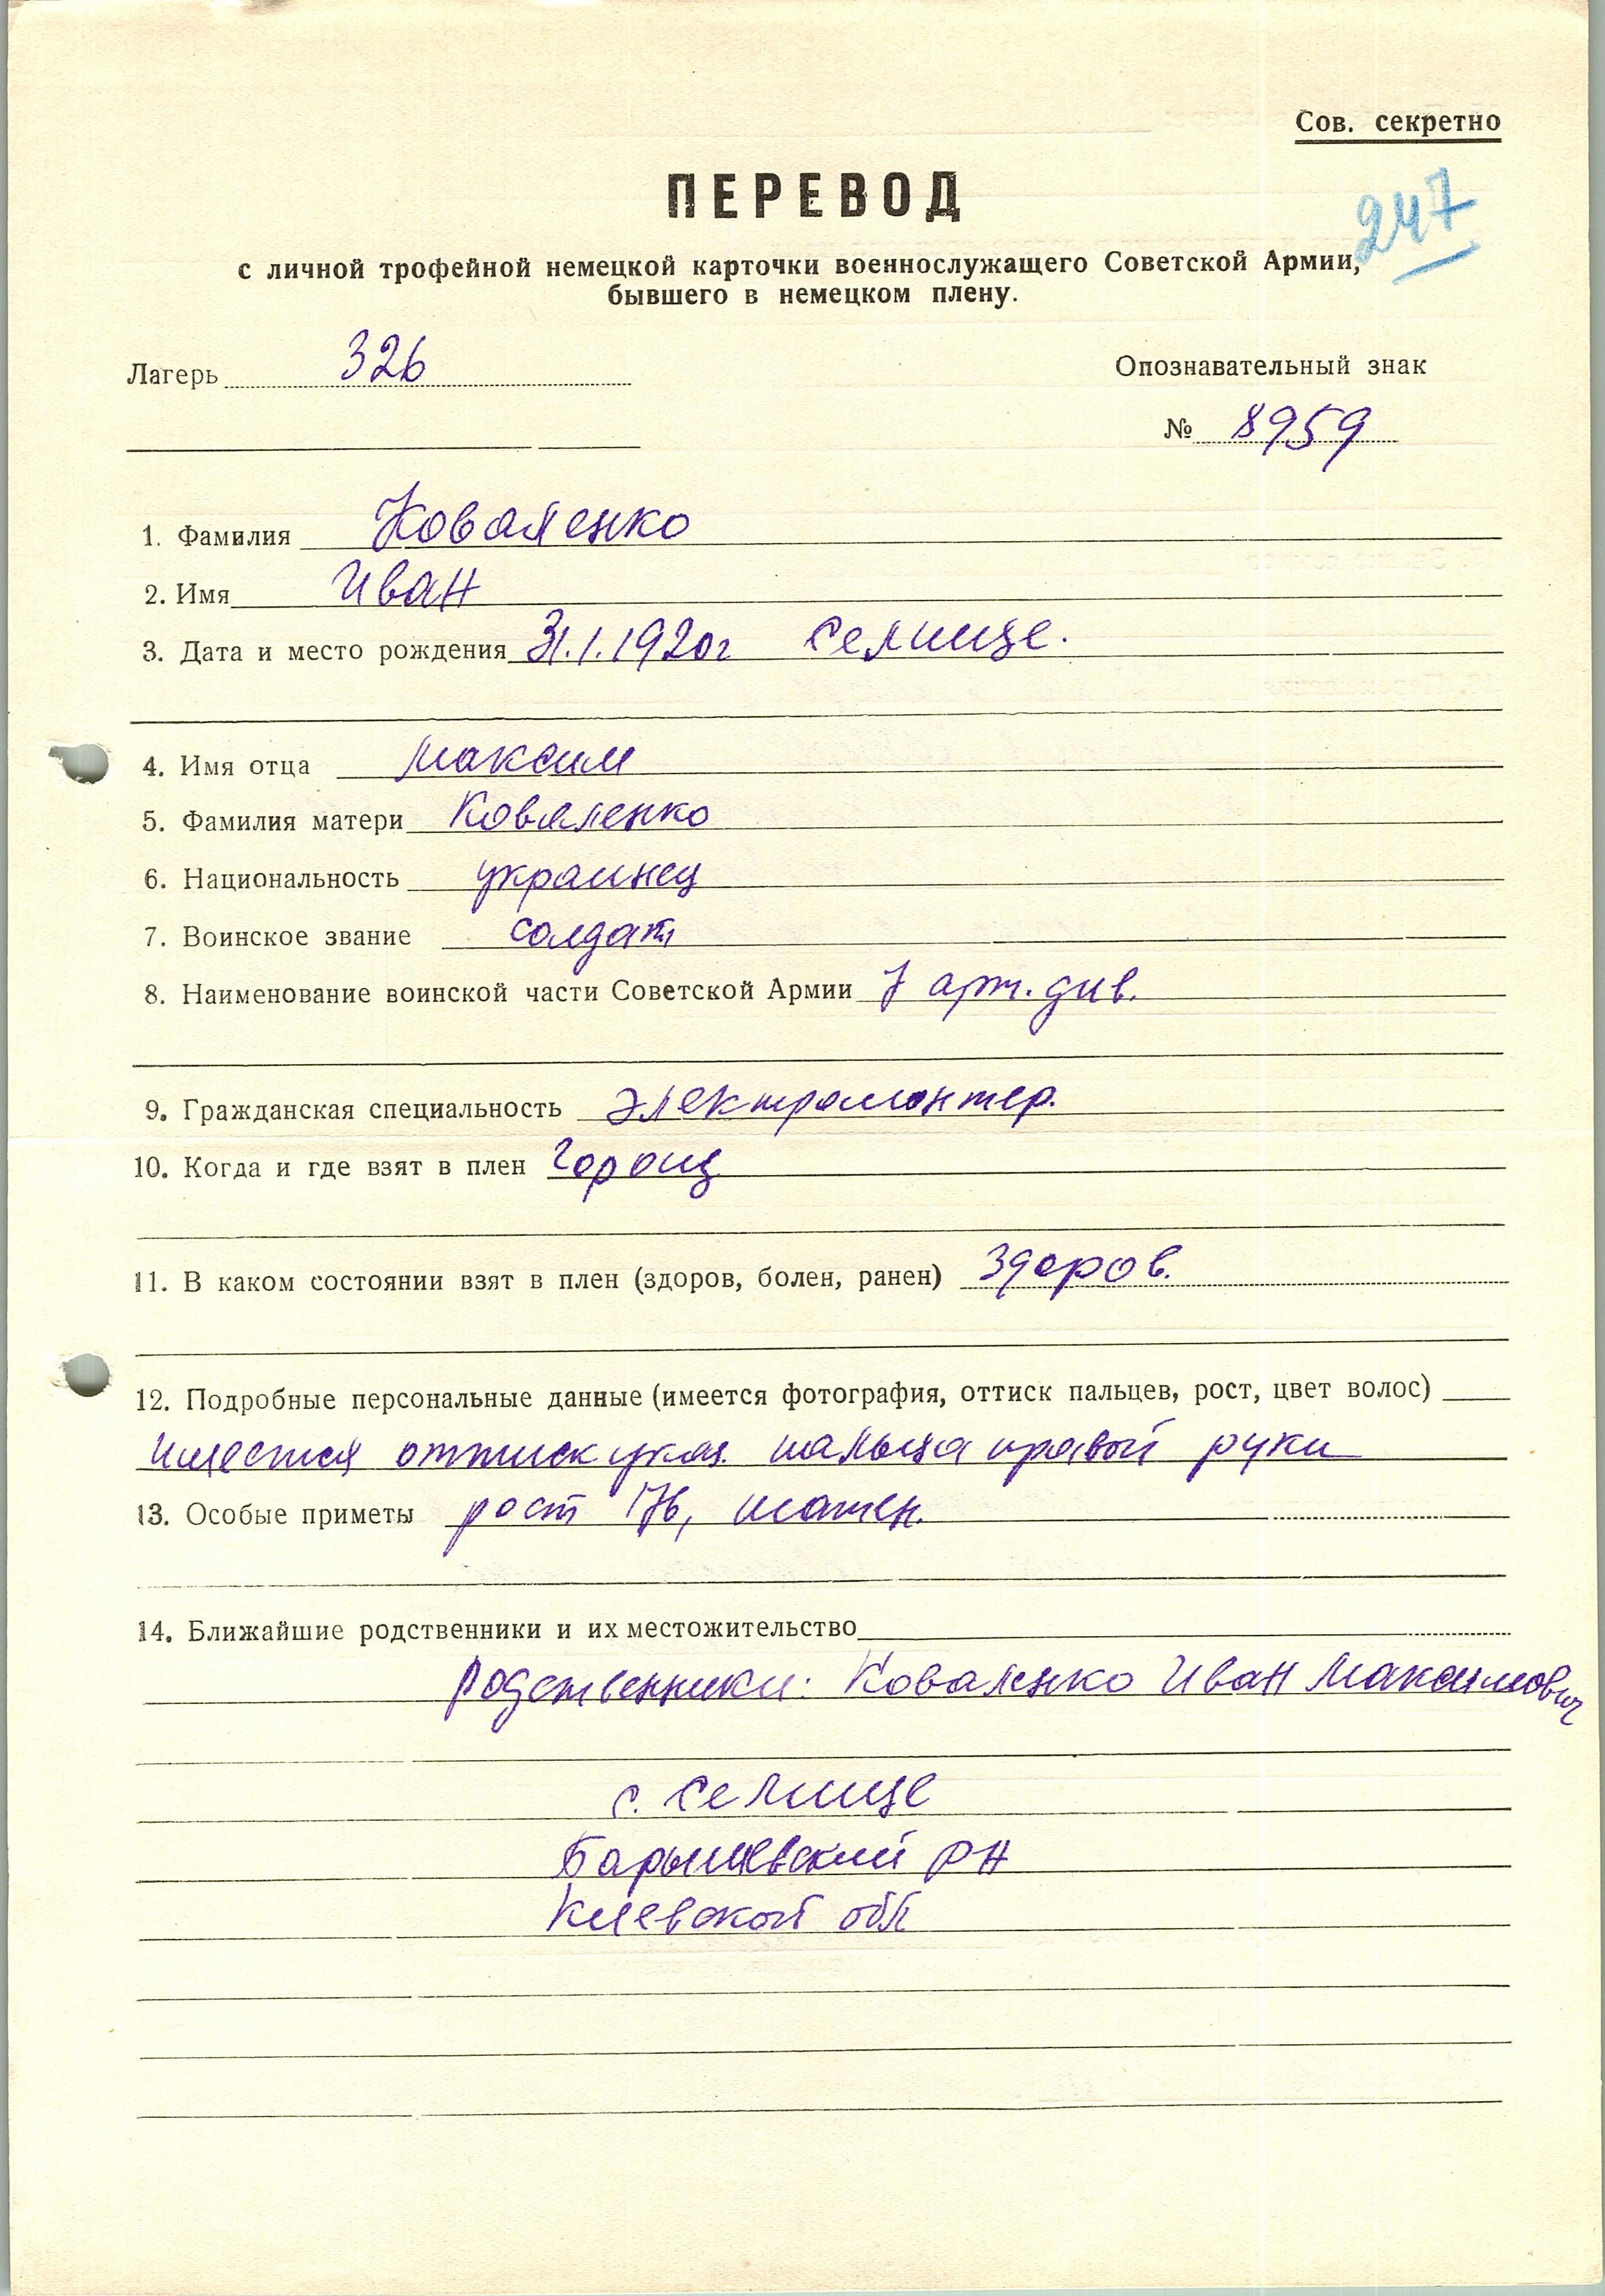 Сов. секретно
ПЕРЕВОД
247
с личной трофейной немецкой карточки военнослужащего Советской Армии,
бывшего в немецком плену.
Лагерь 326 Опознавательный знак
№ 8959
1. Фамилия Коваленко
2. Имя Иван
3. Дата и место рождения 31.1.1920г Селище.
4. Имя отца Максим
5. Фамилия матери Коваленко
6. Национальность украинец
7. Воинское звание солдат
8. Наименование воинской части Советской Армии 7 арт. див.
9. Гражданская специальность электромонтер.
10. Когда и где взят в плен Горощ
11. В каком состоянии взят в плен (здоров, болен, ранен) здоров.
12. Подробные персональные данные (имеется фотография, оттиск пальцев, рост, цвет волос)
имеется оттиск указ. пальца правой руки
13. Особые приметы рост 176, шатен.
14. Ближайшие родственники и их местожительство
родственники: Коваленко Иван Максимович
с. Селище
Барышевский рн
Киевской обл